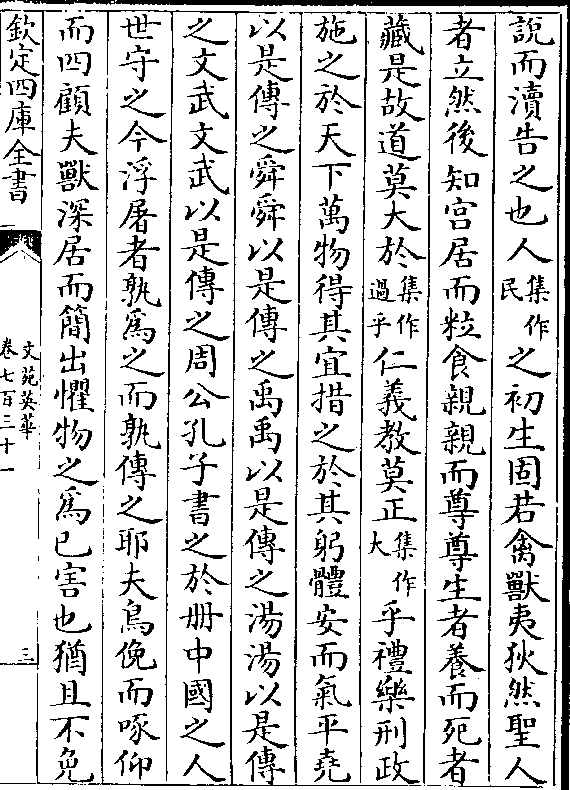 說而瀆告之也人集作民之初生固若禽獸夷狄然聖人
者立然後知宫居而粒食親親而尊尊生者養而死者
藏是故道莫大於集作過乎仁義教莫正集作大乎禮樂刑政
施之於天下萬物得其宜措之於其躬體安而氣平堯
以是傳之舜舜以是傳之禹禹以是傳之湯湯以是傳
之文武文武以是傳之周公孔子書之於册中國之人
世守之今浮屠者孰爲之而孰傳之耶夫鳥俛而啄仰
而四顧夫獸深居而簡出懼物之爲已害也猶且不免
欽定四庫全書
文苑英華
卷七百三十一
三